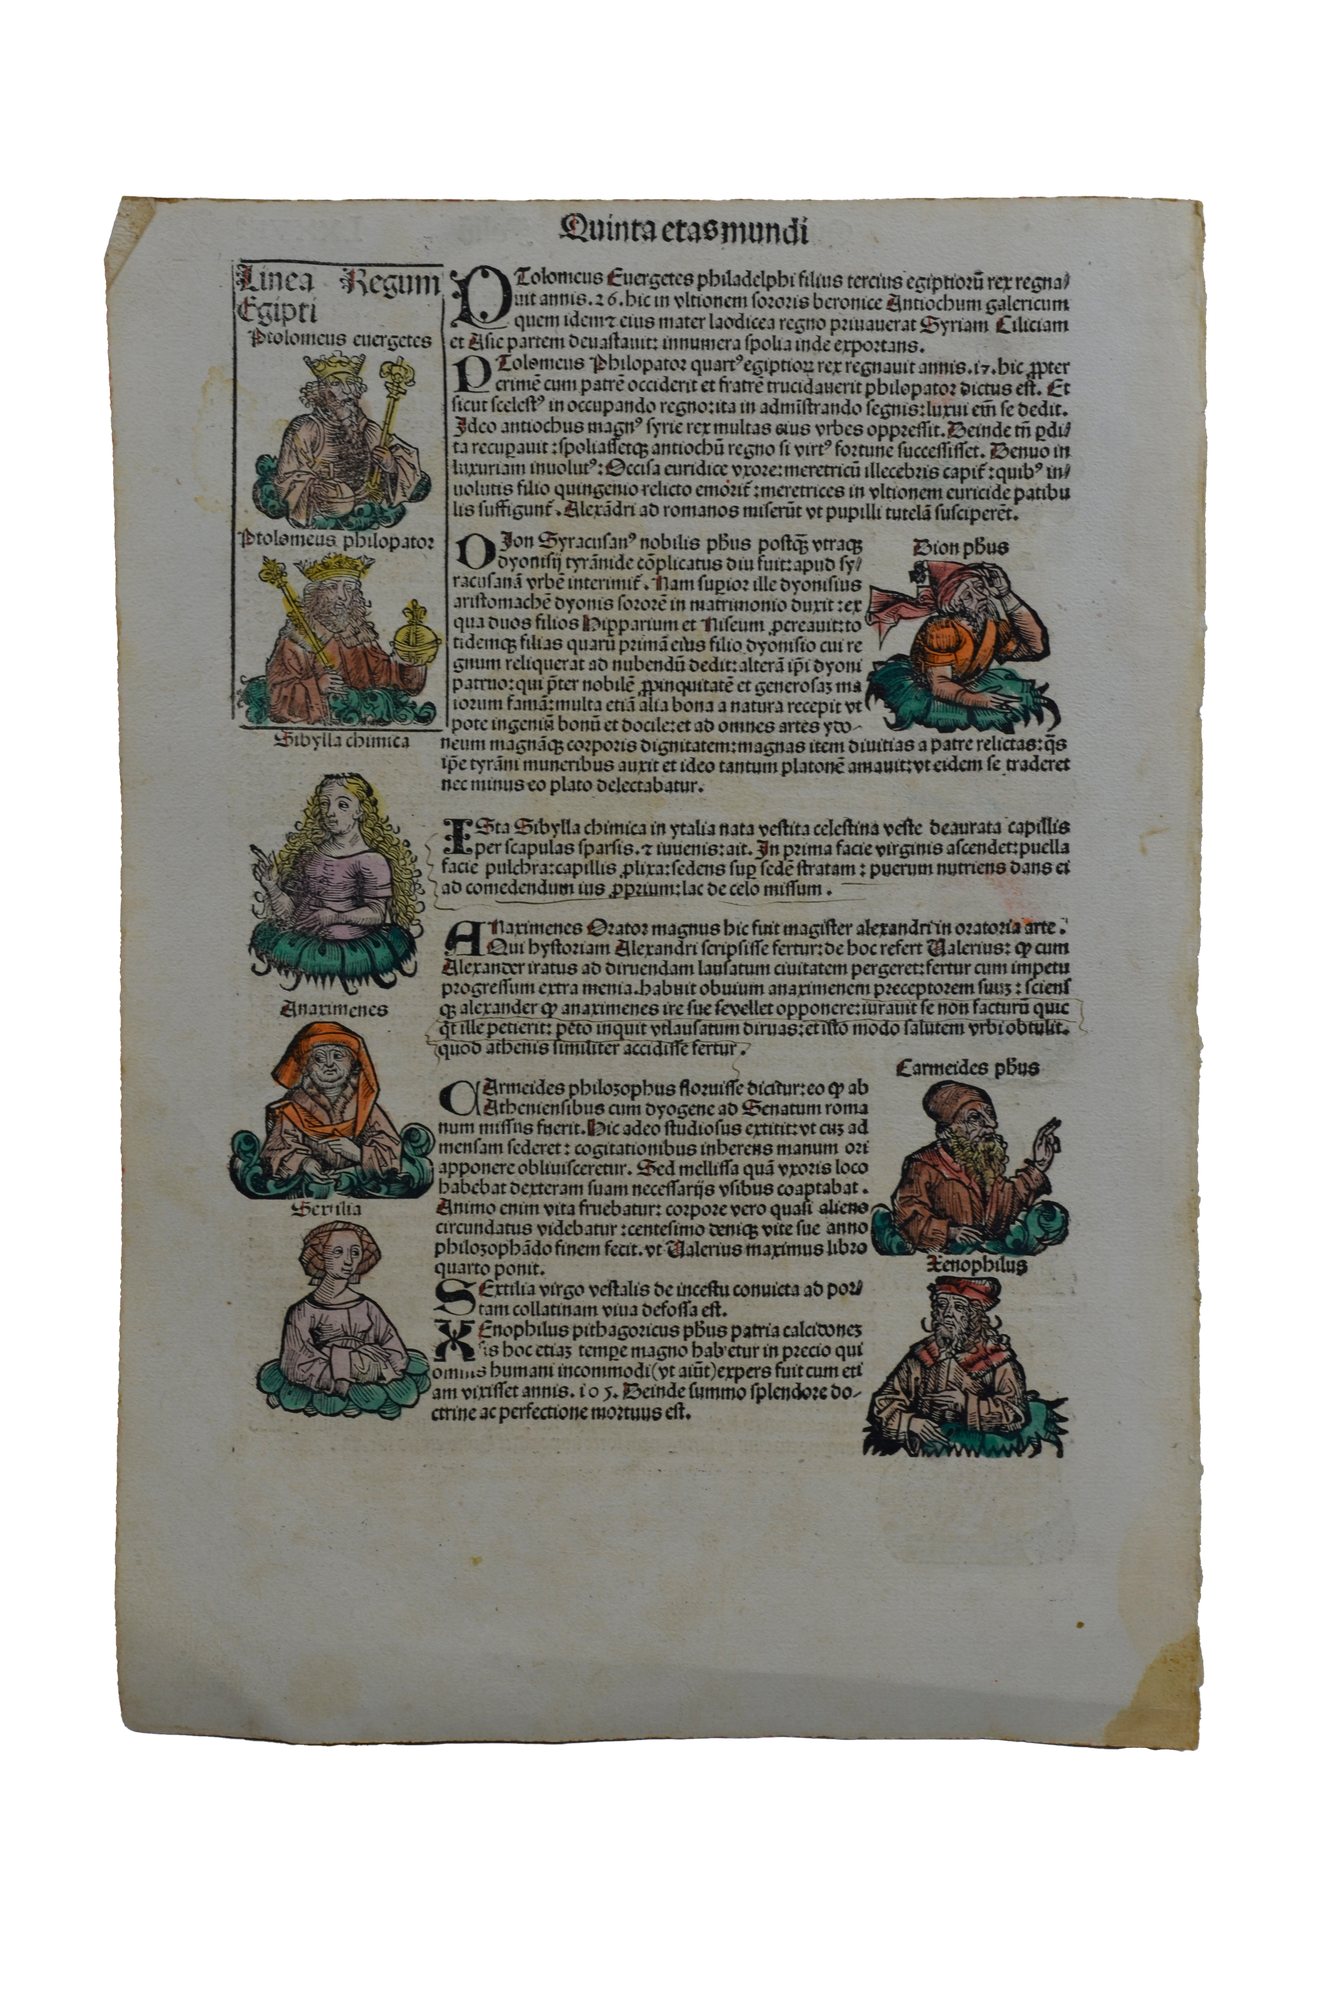 Quinta etas mundi
Linea Regum
Egipti
Ptolomeus euergetes
Ptolomeus philopator
PTolomeus Euergetes philadelphi filius tercius egiptiorũ rex regna/
uit annis .26. hic in vltionem sororis beronice Antiochum galericum
quem idem ⁊ eius mater laodicea regno priuauerat Syriam Ciliciam
et Asie partem deuastauit: innumera spolia inde exportans.
PTolomeus Philopator quartꝰ egiptioꝝ rex regnauit annis .17. hic ꝓpter
crimẽ cum patrẽ occiderit et fratrẽ trucidauerit philopator dictus est. Et
sicut scelestꝰ in occupando regno: ita in admĩstrando segnis: luxui em̃ se dedit.
Ideo antiochus magnꝰ syrie rex multas eius vrbes oppressit. Deinde tñ ꝑdi/
ta recuꝑauit: spoliassetqꝫ antiochũ regno si virtꝰ fortune successisset. Denuo in
luxuriam inuolutꝰ: Occisa euridice vxore: meretricũ illecebris capit̃: quibꝰ in/
uolutis filio quingenio relicto emorit̃: meretrices in vltionem euricide patibu
lis suffigunt̃. Alexãdri ad romanos miserũt vt pupilli tutelã susciperẽt.
Dion ph̃us
DIon Syracusanꝰ nobilis ph̃us postqꝫ̃ vtraqꝫ
dyonisij tyrãnide cõplicatus diu fuit: apud sy/
racusanã vrbẽ interimit̃. Nam suꝑior ille dyonisius
aristomachẽ dyonis sororẽ in matrimonio duxit: ex
qua duos filios Hipparium et Niseum ꝓcreauit: to
tidemqꝫ filias quarũ primã eius filio dyonisio cui re
gnum reliquerat ad nubendũ dedit: alterã ip̃i dyoni
patruo: qui p̃ter nobilẽ ꝓpinquitatẽ et generosaꝫ ma
iorum famã: multa etiã alia bona a natura recepit vt
pote ingeniũ bonũ et docile: et ad omnes artes ydo-
neum magnãqꝫ corporis dignitatem: magnas item diuitias a patre relictas: q̃s
ip̃e tyrãni muneribus auxit et ideo tantum platonẽ amauit: vt eidem se traderet
nec minus eo plato delectabatur.
Sibylla chimica
ISta Sibylla chimica in ytalia nata vestita celestina veste deaurata capillis
per scapulas sparsis. ⁊ iuuenis: ait. In prima facie virginis ascendet: puella
facie pulchra: capillis ꝓlixa: sedens suꝑ sedẽ stratam: puerum nutriens dans ei
ad comedendum ius ꝓprium: lac de celo missum.
Anaximenes
ANaximenes Orator magnus hic fuit magister alexandri in oratoria arte.
Qui hystoriam Alexandri scripsisse fertur: de hoc refert Ualerius: ꝙ cum
Alexander iratus ad diruendam lausatum ciuitatem pergeret: fertur cum impetu
progressum extra menia. habuit obuium anaximenem preceptorem suuꝫ: sciens
qꝫ alexander ꝙ anaximenes ire sue seuellet opponere: iurauit se non facturũ quic
q̃t ille petierit: peto inquit vt lausatum diruas: et isto modo salutem vrbi obtulit.
quod athenis similiter accidisse fertur.
Carmeides ph̃us
CArmeides philozophus floruisse dicitur: eo ꝙ ab
Atheniensibus cum dyogene ad Senatum roma
num missus fuerit. Hic adeo studiosus extitit: vt cuꝫ ad
mensam sederet: cogitationibus inherens manum ori
apponere obliuisceretur. Sed mellissa quã vxoris loco
habebat dexteram suam necessarijs vsibus coaptabat.
Animo enim vita fruebatur: corpore vero quasi alieno
circundatus videbatur: centesimo deniqꝫ vite sue anno
philozophãdo finem fecit. vt Ualerius maximus libro
quarto ponit.
Sextilia
SExtilia virgo vestalis de incestu conuicta ad por/
tam collatinam viua defossa est.
Xenophilus
XEnophilus pithagoricus ph̃us patria calcidoneꝫ
sis hoc etiaꝫ tempe magno habetur in precio qui
omnis humani incommodi (vt aiũt) expers fuit cum eti
am vixisset annis .105. Deinde summo splendore do-
ctrine ac perfectione mortuus est.